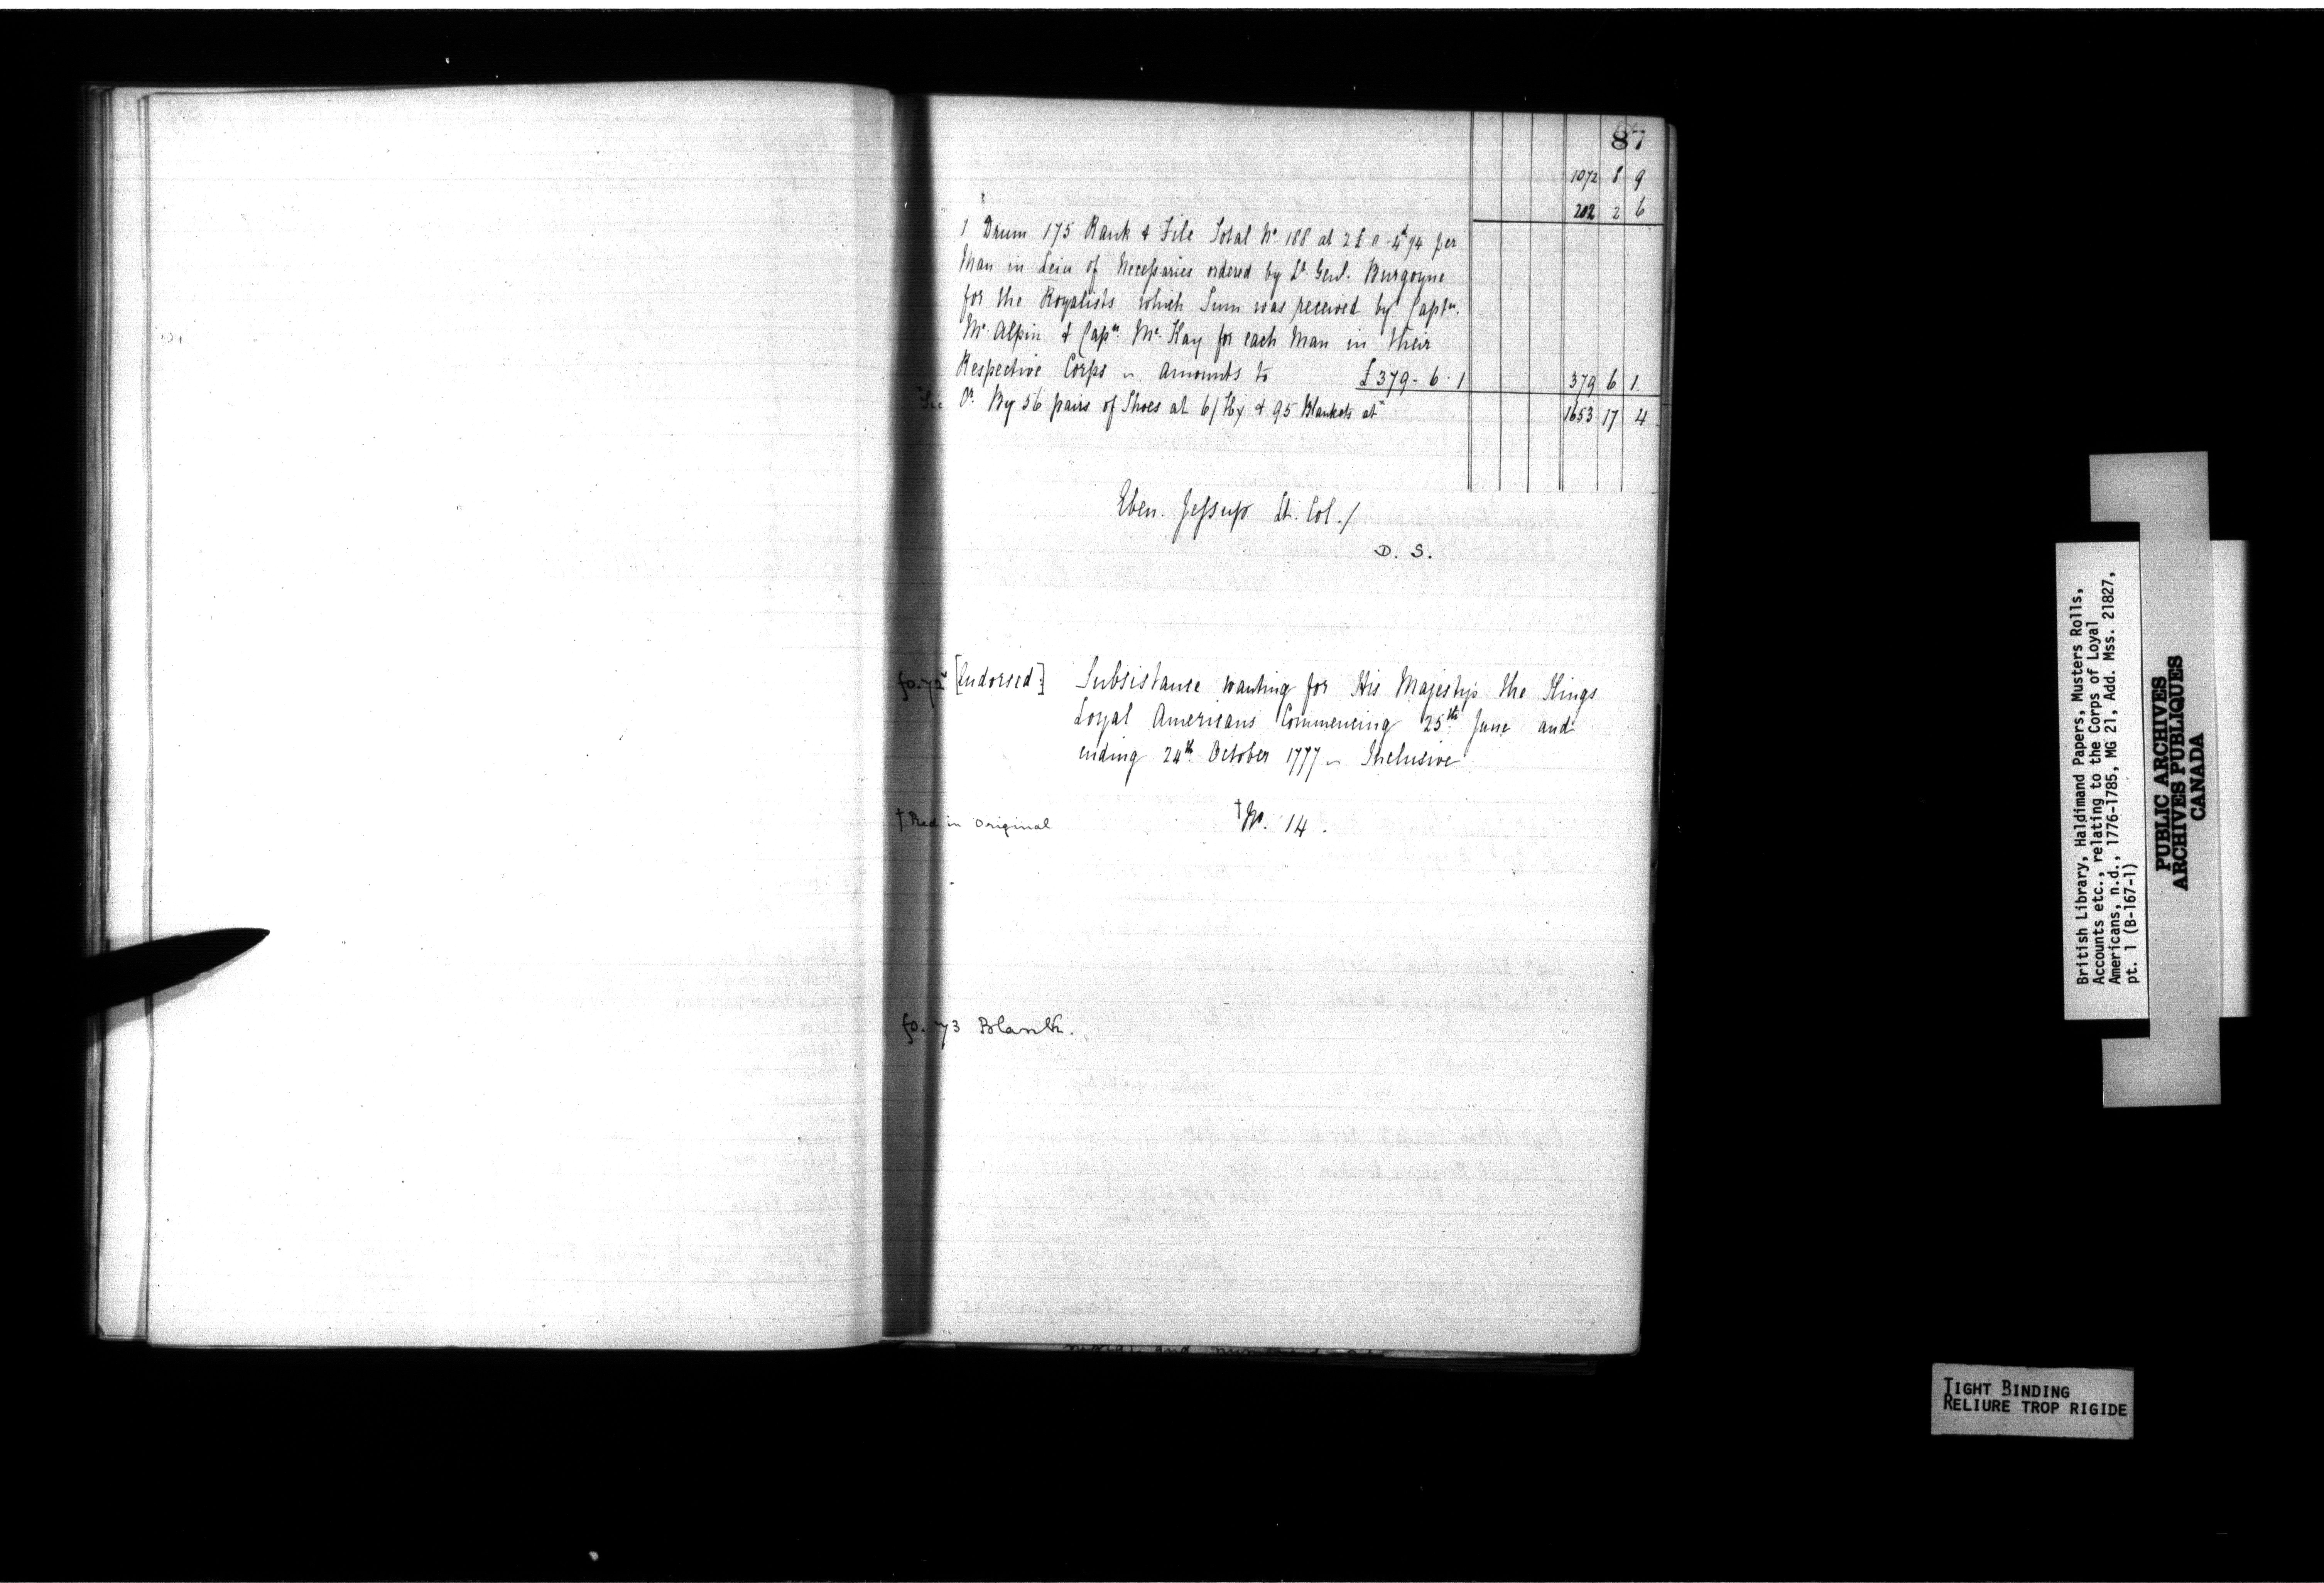 87
1072 8 9
202 2 6
1 Drum 175 Rank & File Total No. 188 at 2£ 0 - 4d 1/4 per
Man in Leiu of Necessaries ordered by Lt. Genl. Burgoyne
for the Royalists which Sum was received by Captn.
Mc. Alpin & Capn. Mc. Kay for each Man in their
Respective Corps ~ amounts to £379 - 6 - 1 379 6 1
"Sic Or. By 56 pairs of Shoes at 6/ & 95 Blankets at" 1653 17 4
Eben. Jessup Lt. Col./
D. S.
fo. 72v [Endorsed:] Subsistance wanting for His Majesty's the Kings
Loyal Americans Commencing 25th June and
ending 24th October 1777 ~ Inclusive
† Red in original †No. 14.
fo. 73 Blank.
British Library, Haldimand Papers, Musters Rolls,
Accounts etc., relating to the Corps of Loyal
Americans, n.d., 1776-1785, MG 21, Add. Mss. 21827,
pt. 1 (B-167-1)
PUBLIC ARCHIVES
ARCHIVES PUBLIQUES
CANADA
TIGHT BINDING
RELIURE TROP RIGIDE